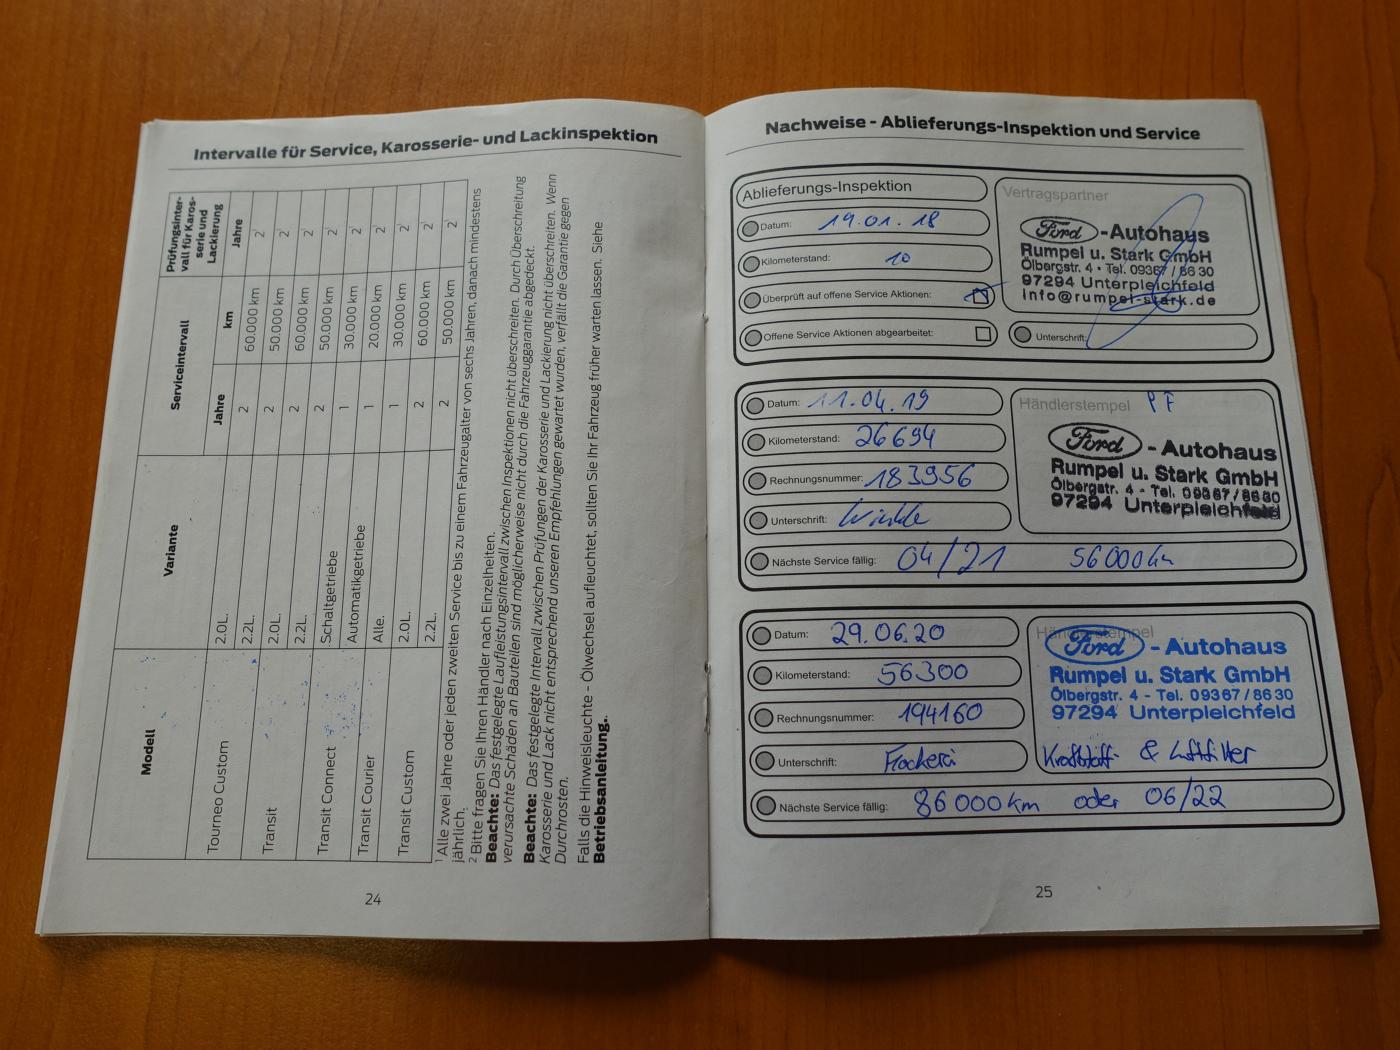 Intervalle für Service, Karosserie- und Lackinspektion
Modell Variante Serviceintervall Prüfungsinter-
vall für Karos-
serie und
Lackierung
Jahre km Jahre
Tourneo Custom 2.0L. 2 60.000 km 2¹
2.2L. 2 50.000 km 2¹
Transit 2.0L. 2 60.000 km 2¹
2.2L. 2 50.000 km 2¹
Transit Connect Schaltgetriebe 1 30.000 km 2¹
Automatikgetriebe 1 20.000 km 2¹
Transit Courier Alle. 1 30.000 km 2¹
Transit Custom 2.0L. 2 60.000 km 2¹
2.2L. 2 50.000 km 2¹
¹ Alle zwei Jahre oder jeden zweiten Service bis zu einem Fahrzeugalter von sechs Jahren, danach mindestens
jährlich.
² Bitte fragen Sie Ihren Händler nach Einzelheiten.
Beachte: Das festgelegte Laufleistungsintervall zwischen Inspektionen nicht überschreiten. Durch Überschreitung
verursachte Schäden an Bauteilen sind möglicherweise nicht durch die Fahrzeuggarantie abgedeckt.
Beachte: Das festgelegte Intervall zwischen Prüfungen der Karosserie und Lackierung nicht überschreiten. Wenn
Karosserie und Lack nicht entsprechend unseren Empfehlungen gewartet wurden, verfällt die Garantie gegen
Durchrosten.
Falls die Hinweisleuchte - Ölwechsel aufleuchtet, sollten Sie Ihr Fahrzeug früher warten lassen. Siehe
Betriebsanleitung.
24
Nachweise - Ablieferungs-Inspektion und Service
Ablieferungs-Inspektion
Datum: 19.01.18
Kilometerstand: 10
Überprüft auf offene Service Aktionen:
Offene Service Aktionen abgearbeitet:
Vertragspartner
Ford -Autohaus
Rumpel u. Stark GmbH
Ölbergstr. 4 · Tel. 09367 / 86 30
97294 Unterpleichfeld
info@rumpel-stark.de
Unterschrift:
Datum: 11.04.19
Kilometerstand: 26694
Rechnungsnummer: 183956
Unterschrift:
Händlerstempel PF
Ford - Autohaus
Rumpel u. Stark GmbH
Ölbergstr. 4 - Tel. 09367/8630
97294 Unterpleichfeld
Nächste Service fällig: 04/21 56000km
Datum: 29.06.20
Kilometerstand: 56300
Rechnungsnummer: 194160
Unterschrift:
Händlerstempel
Ford - Autohaus
Rumpel u. Stark GmbH
Ölbergstr. 4 - Tel. 09367/8630
97294 Unterpleichfeld
Kraftstoff- & Luftfilter
Nächste Service fällig: 86000km oder 06/22
25